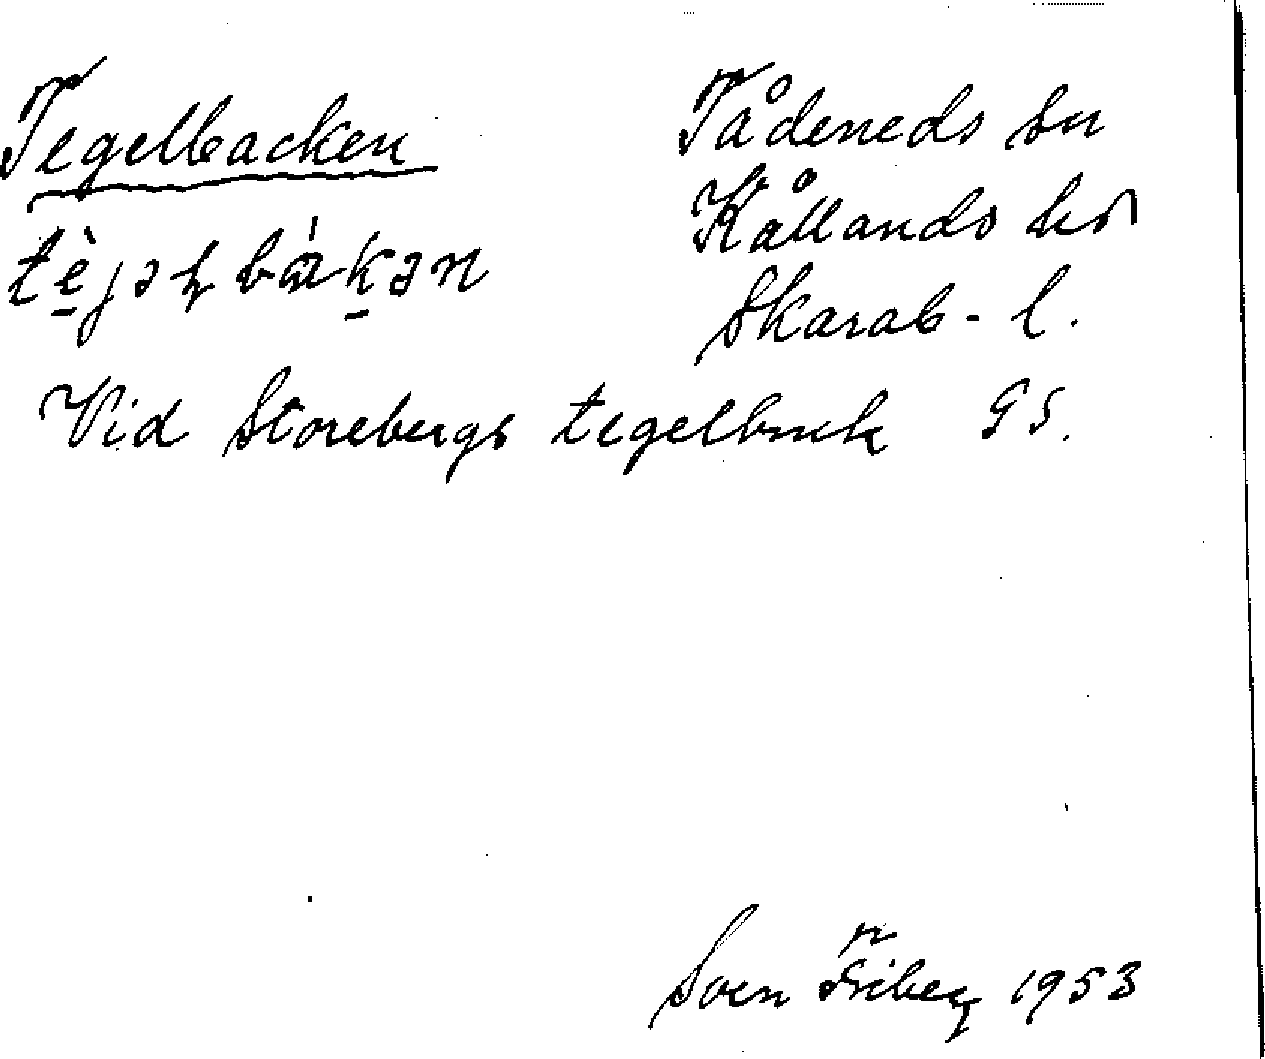 Tegelbacken
Tådeneds sn
Kållands hd
Skarab-l.
Vid Storebergs tegelbruk GS.
Sven Friberg 1953